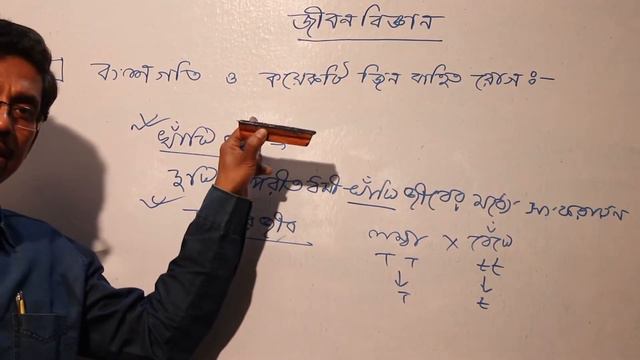 জীবন বিজ্ঞান
বংশগতি ও কয়েকটি জিন বাহিত রোগ :-
খাঁটি
দুটি বিপরীতধর্মী খাঁটি জীবের মধ্যে সংকরায়ন
জীব
লম্বা × বেঁটে
T T tt
T t